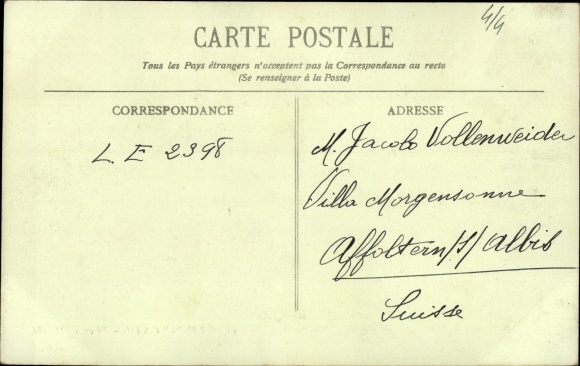 4/4
CARTE POSTALE
Tous les Pays étrangers n'acceptent pas la Correspondance au recto
(Se renseigner à la Poste)
CORRESPONDANCE
L E 2398
ADRESSE
M. Jacob Vollenweider
Villa Morgensonne
Affoltern/s/Albis
Suisse